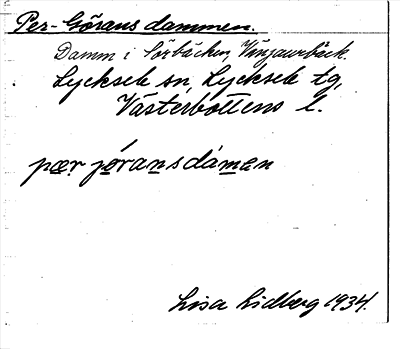 Per-Görans dammen.
Damm i Sörbäcken, Vinganbäck.
Lycksele sn, Lycksele tg,
Västerbottens l.
pær jöransdámen
Lisa Lidberg 1934.